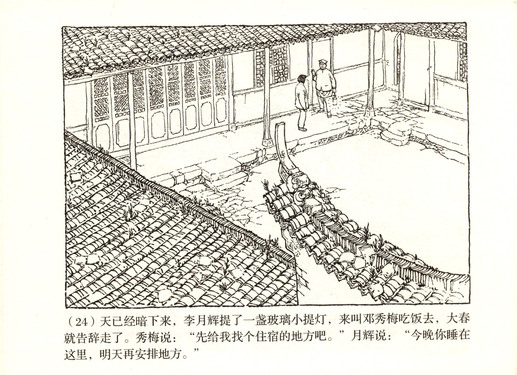 （24）天已经暗下来，李月辉提了一盏玻璃小提灯，来叫邓秀梅吃饭去，大春
就告辞走了。秀梅说：“先给我找个住宿的地方吧。”月辉说：“今晚你睡在
这里，明天再安排地方。”